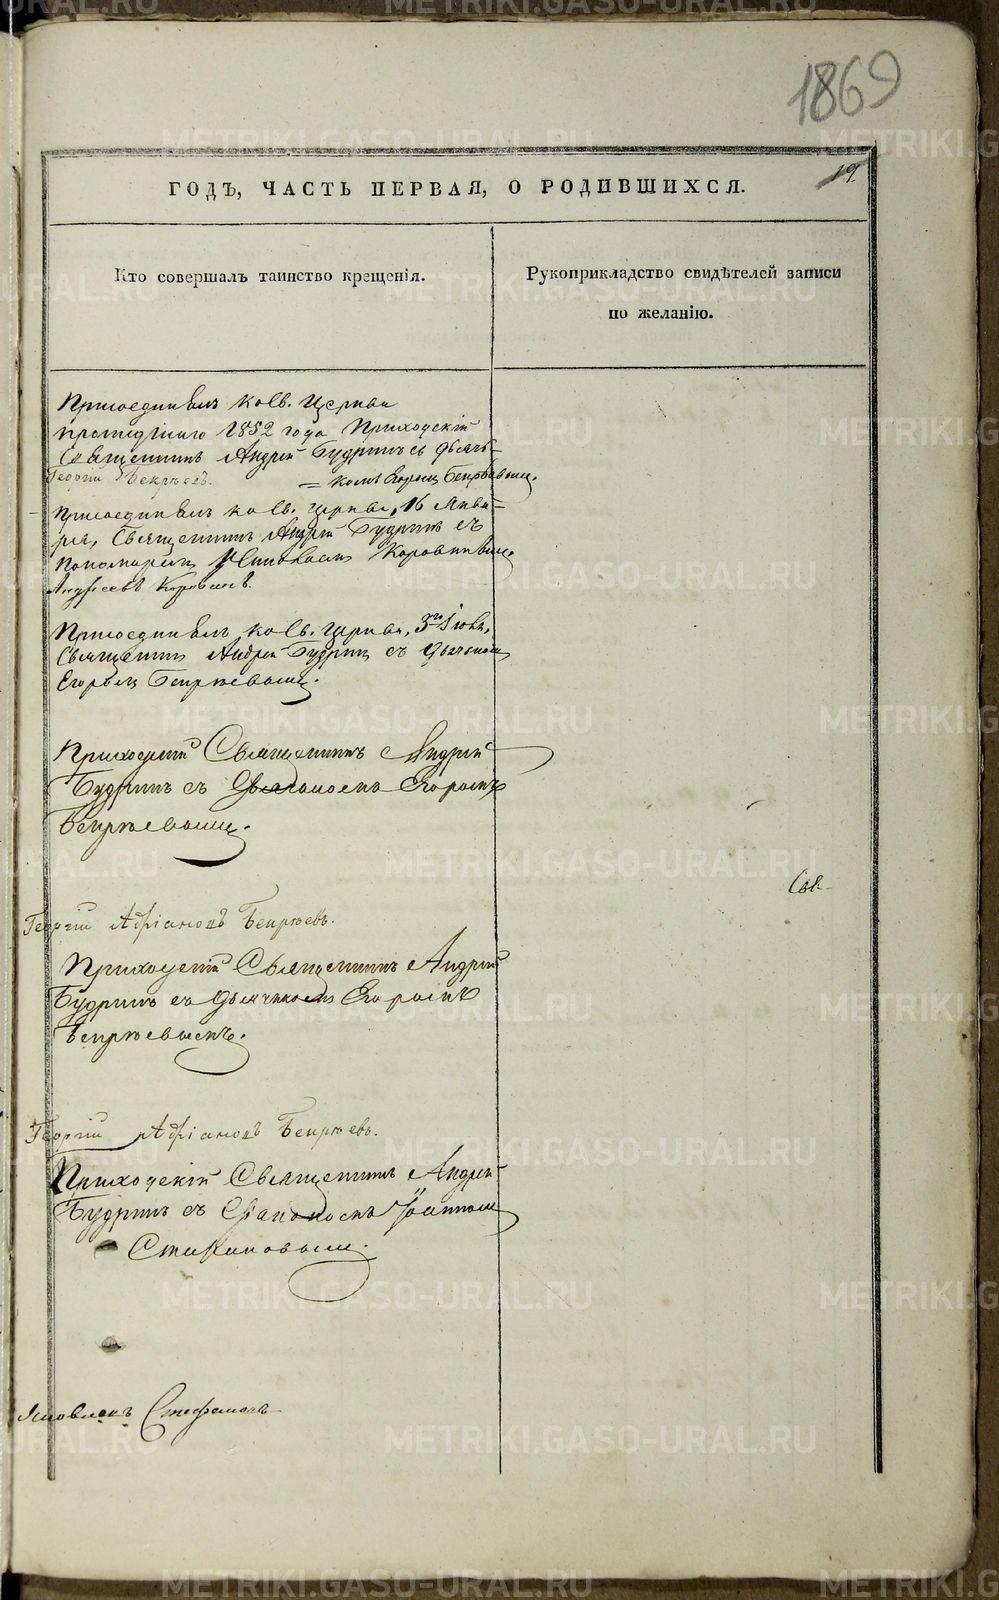 1869
19.
ГОДЪ, ЧАСТЬ ПЕРВАЯ, О РОДИВШИХСЯ.
Кто совершалъ таинство крещенія.
Рукоприкладство свидѣтелей записи
по желанію.
Присоединялъ ко Св. Церкви
1852 года Приходскій
Священникъ Андрей Будринъ съ дьяч-
Георгій Бекрѣевъ.
= комъ Егоромъ Бекрѣевымъ.
Присоединялъ ко Св. Церкви, 16 Янва-
ря, Священникъ Андрей Будринъ съ
пономаремъ Коровинымъ
Присоединялъ ко Св. Церкви, 3го
Священникъ Андрей Будринъ съ дьячкомъ
Егоромъ Бекрѣевымъ.
Приходскій Священникъ Андрей
Будринъ съ дьячкомъ Егоромъ
Бекрѣевымъ.
Георгій Адріановъ Бекрѣевъ.
Приходскій Священникъ Андрей
Будринъ съ дьячкомъ Егоромъ
Бекрѣевымъ.
Георгій Адріановъ Бекрѣевъ.
Приходскій Священникъ Андрей
Будринъ съ Діакономъ Іоанномъ
METRIKI.GASO-URAL.RU